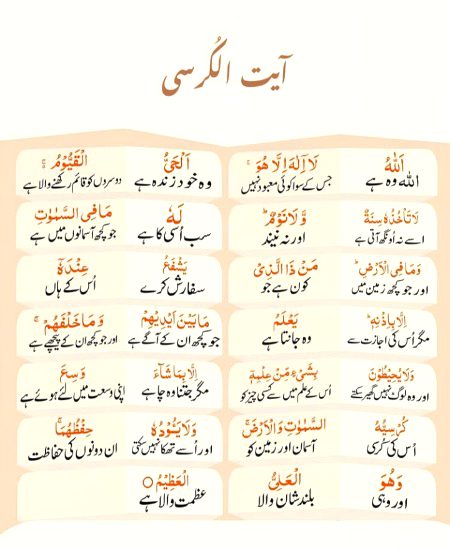 آیت الکُرسی
اَللّٰهُ لَاۤ اِلٰهَ اِلَّا هُوَ ۚ اَلْحَیُّ الْقَیُّوْمُ ۚ
اللہ وہ ہے جس کے سوا کوئی معبود نہیں وہ خود زندہ ہے دوسروں کو قائم رکھنے والا ہے
لَا تَاْخُذُهٗ سِنَةٌ وَّ لَا نَوْمٌ ؕ لَهٗ مَا فِی السَّمٰوٰتِ
اسے نہ اُونگھ آتی ہے اور نہ نیند سب اُسی کا ہے جو کچھ آسمانوں میں ہے
وَ مَا فِی الْاَرْضِ ؕ مَنْ ذَا الَّذِیْ یَشْفَعُ عِنْدَهٗۤ
اور جو کچھ زمین میں کون ہے جو سفارش کرے اُس کے ہاں
اِلَّا بِاِذْنِهٖ ؕ یَعْلَمُ مَا بَیْنَ اَیْدِیْهِمْ وَ مَا خَلْفَهُمْ ۚ
مگر اُس کی اجازت سے وہ جانتا ہے جو کچھ ان کے آگے ہے اور جو کچھ ان کے پیچھے ہے
وَ لَا یُحِیْطُوْنَ بِشَیْءٍ مِّنْ عِلْمِهٖۤ اِلَّا بِمَا شَآءَ ۚ وَسِعَ
اور وہ لوگ نہیں گھیر سکتے اُس کے علم میں سے کسی چیز کو مگر جتنا وہ چاہے اپنی وسعت میں لئے ہوئے ہے
كُرْسِیُّهُ السَّمٰوٰتِ وَ الْاَرْضَ ۚ وَ لَا یَـُٔوْدُهٗ حِفْظُهُمَا ۚ
اُس کی کُرسی آسمان اور زمین کو اور اُسے تھکا نہیں سکتی ان دونوں کی حفاظت
وَ هُوَ الْعَلِیُّ الْعَظِیْمُ ○
اور وہی بلند شان والا عظمت والا ہے